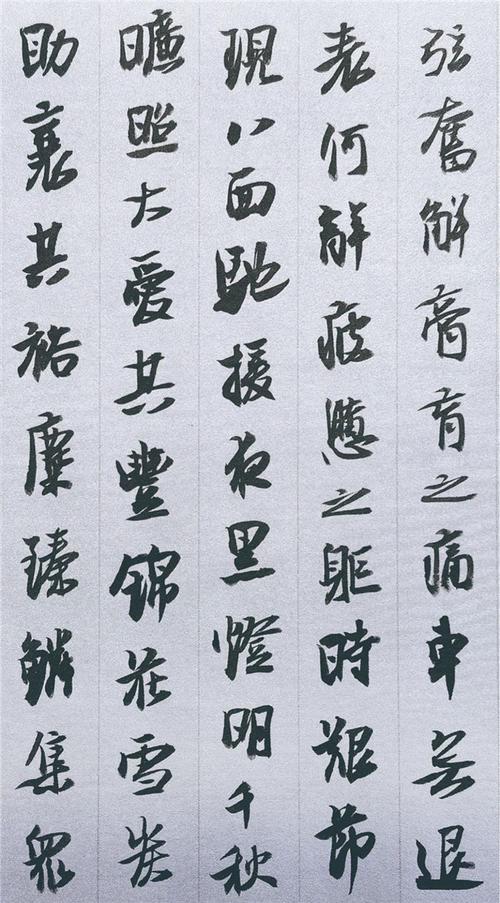 弦奮解膏肓之痛車無退
表何辭疲憊之躯時艱節
現八面馳援夜黑燈明千秋
曠照大愛共豐錦莊雪炭
助襄共裕糜臻鱗集眾